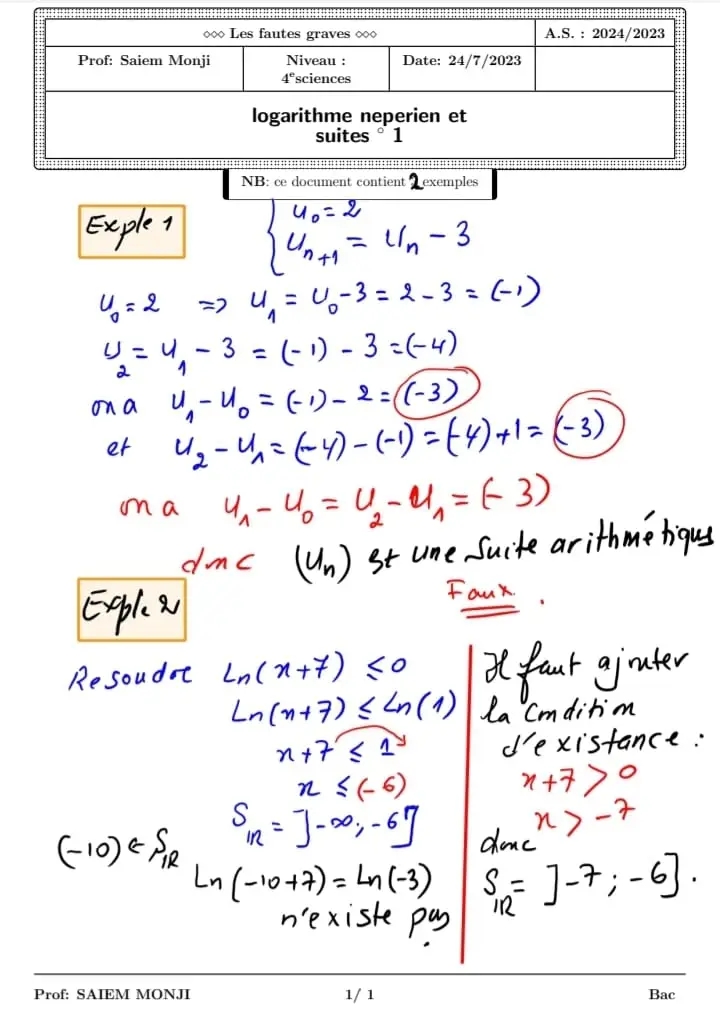 ⋄⋄⋄ Les fautes graves ⋄⋄⋄
A.S. : 2024/2023
Prof: Saiem Monji
Niveau :
4ᵉsciences
Date: 24/7/2023
logarithme neperien et
suites ° 1
NB: ce document contient 2 exemples
Exple 1
{ U₀ = 2
Uₙ₊₁ = Uₙ - 3
U₀ = 2 => U₁ = U₀ - 3 = 2 - 3 = (-1)
U₂ = U₁ - 3 = (-1) - 3 = (-4)
on a U₁ - U₀ = (-1) - 2 = (-3)
et U₂ - U₁ = (-4) - (-1) = (-4) + 1 = (-3)
on a U₁ - U₀ = U₂ - U₁ = (-3)
donc (Uₙ) est une suite arithmétiqus
Faux.
Exple 2
Resoudre Ln(x+7) ≤ 0
Ln(x+7) ≤ Ln(1)
x+7 ≤ 1
x ≤ (-6)
S_IR = ]-∞; -6]
(-10) ∈ S_IR
Ln(-10+7) = Ln(-3)
n'existe pas
Il faut ajouter
la condition
d'existance :
x+7 > 0
x > -7
donc
S_IR = ]-7; -6].
Prof: SAIEM MONJI
1/ 1
Bac